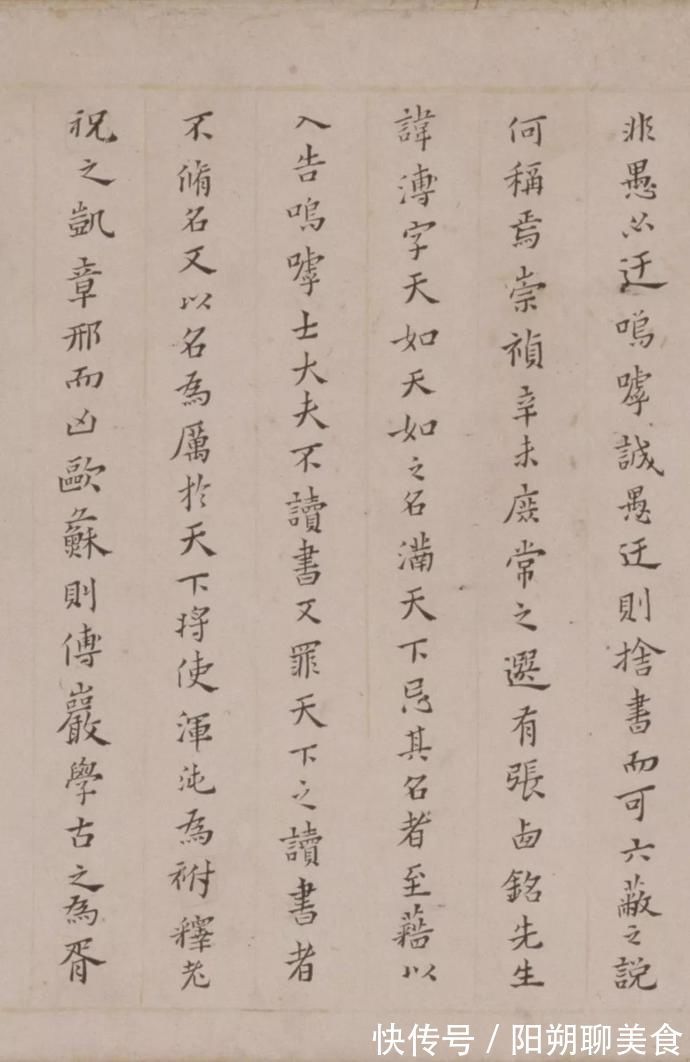 非愚必迂嗚嘑誠愚迂則捨書而可六蔽之說
何稱焉崇禎辛未庶常之選有張卣銘先生
諱溥字天如天如之名滿天下忌其名者至藉以
入告嗚嘑士大夫不讀書又罪天下之讀書者
不脩名又以名為厲於天下將使渾沌為祔釋老
祝之凱章邢而凶歐蘇則傅巖學古之為胥
快传号 / 阳朔聊美食